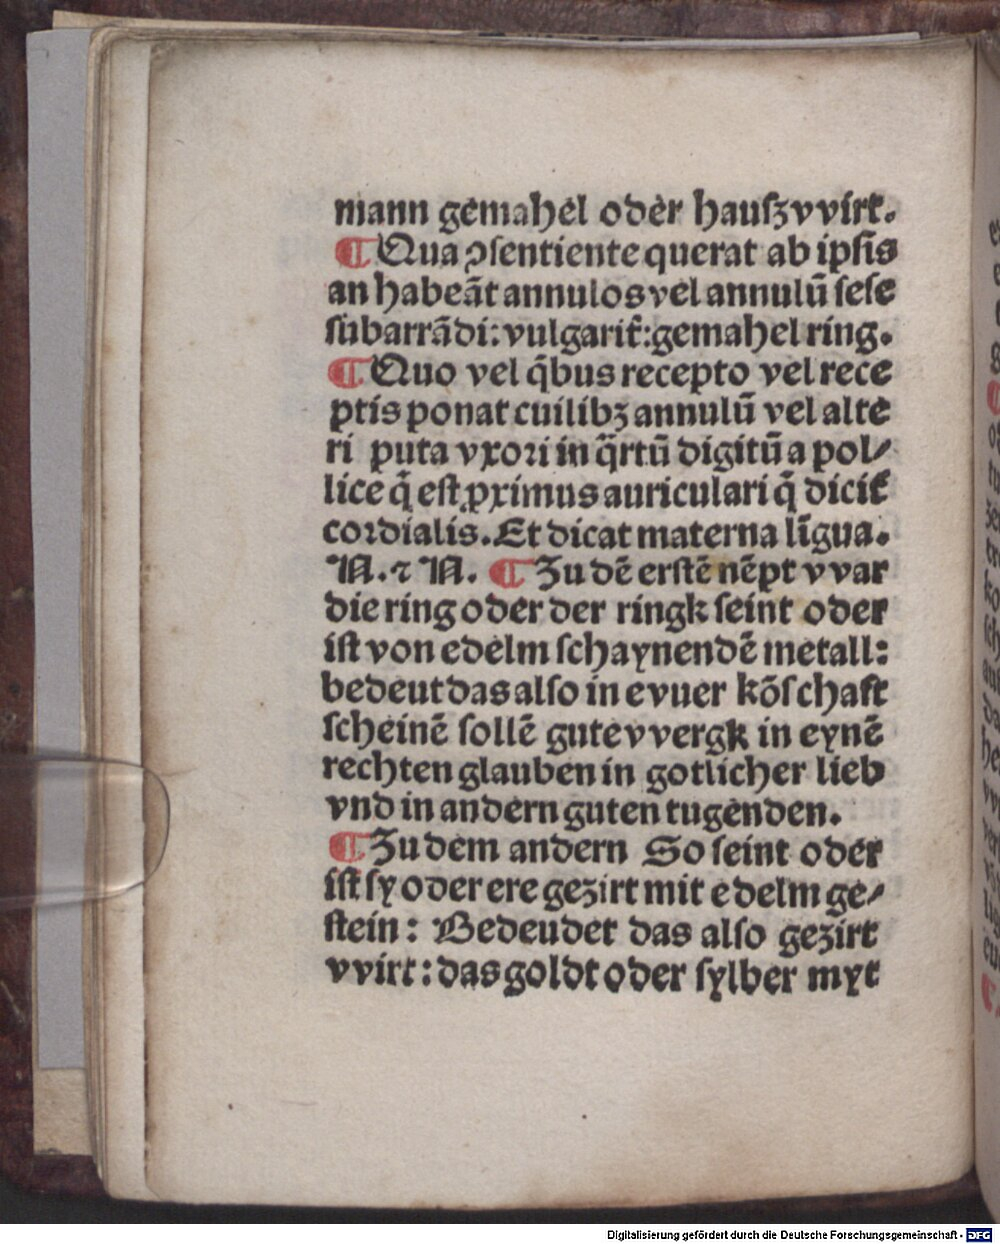 mann gemahel oder hauſzvvirt.
¶ Qua ↄſentiente querat ab ipſis
an habeãt annulos vel annulũ ſeſe
ſubarrãdi: vulgarit̃: gemahel ring.
¶ Quo vel q̃bus recepto vel rece
ptis ponat cuilibꝫ annulũ vel alte
ri puta vxori in q̃rtũ digitũ a pol⸗
lice q̃ eſt ꝓximus auriculari q̃ dicit̃
cordialis. Et dicat materna lĩgua.
N. ⁊ N. ¶ Zu dẽ erſtẽ nẽpt vvar
die ring oder der ringk ſeint oder
iſt von edelm ſchaynendẽ metall:
bedeut das alſo in evuer kõſchaft
ſcheinẽ ſollẽ gute vvergk in eynẽ
rechten glauben in gotlicher lieb
vnd in andern guten tugenden.
¶ Zu dem andern So ſeint oder
iſt ſy oder ere gezirt mit edelm ge⸗
ſtein: Bedeudet das alſo gezirt
vvirt: das goldt oder ſylber myt
Digitalisierung gefördert durch die Deutsche Forschungsgemeinschaft - DFG